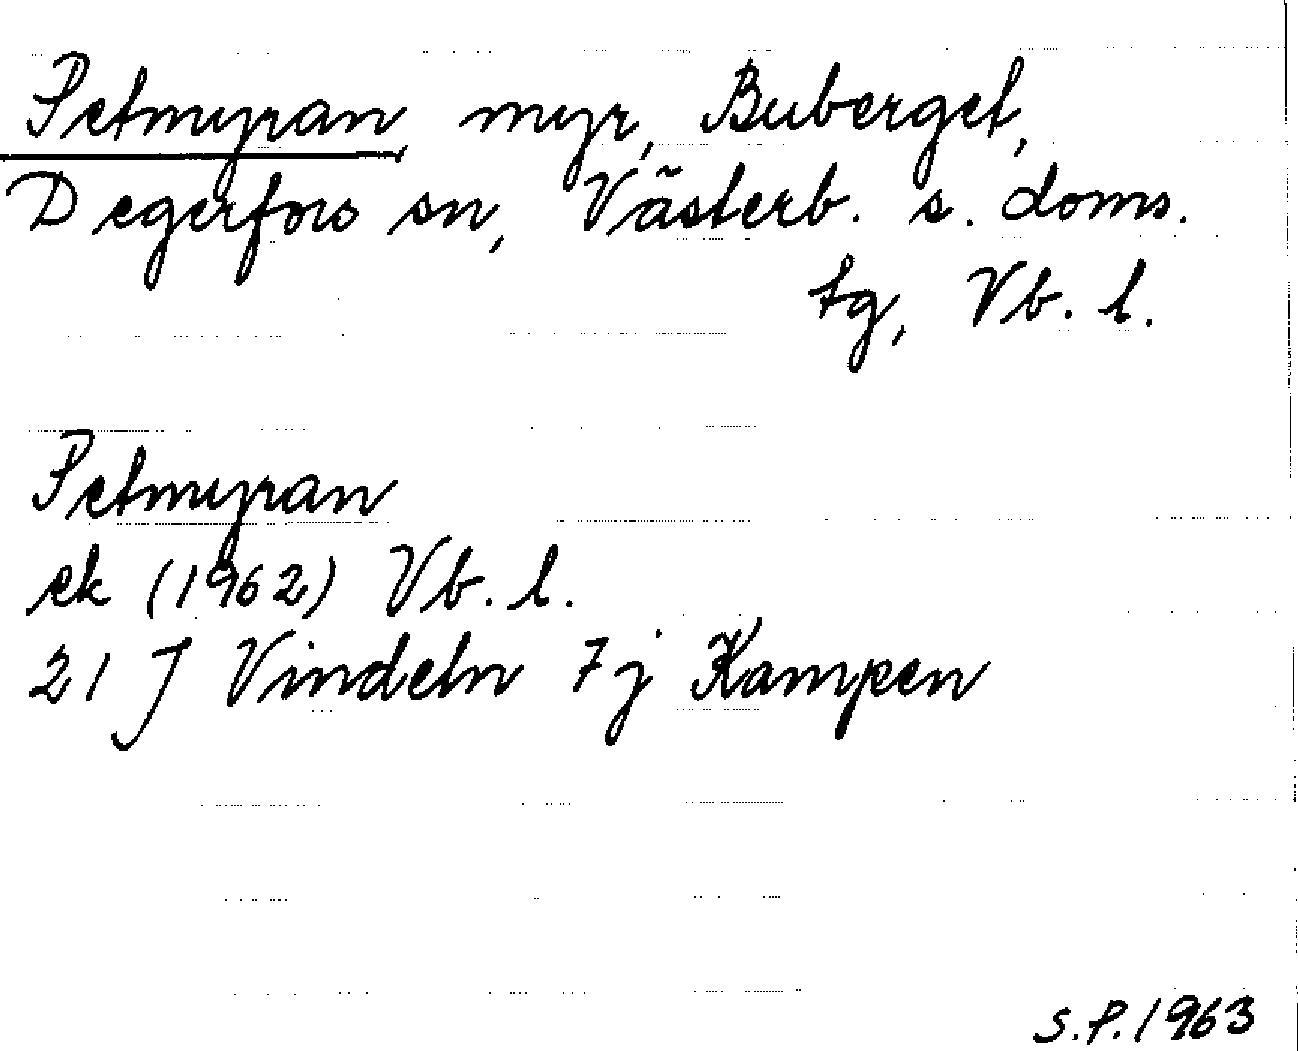 Petmyran, myr, Buberget,
Degerfors sn, Västerb. s. doms.
tg, Vb. l.
Petmyran
ek (1962) Vb. l.
21 J Vindeln 7j Kampen
S.P. 1963